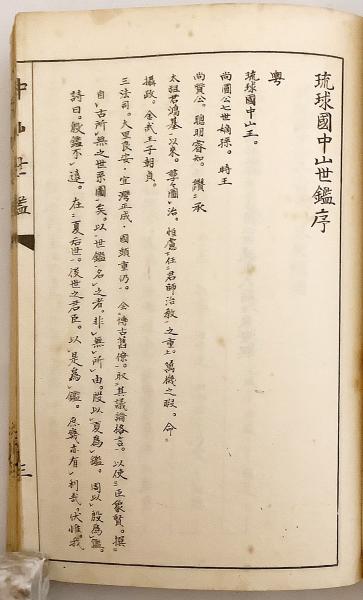 琉球國中山世鑑序
粤
琉球國中山王。
尚圓公七世嫡孫。時王
尚質公。聰明睿知。讃承
太祖君鴻基以來。孳々圖治。惟慮任君師治教之重上。萬機之暇。命
攝政。金武王子朝貞。
三法司。大里良安・宜灣正成・國頭重仍。令傳古舊僚。取其議論格言。以使臣象賢。撰
自古所無之世系圖矣。以世鑑名之者。非無所由。殷以夏爲鑑。周以殷爲鑑。
詩曰。殷鑑不遠。在夏后世。後世之君臣。以是爲鑑。庶幾亦有利哉。伏惟我
中山世鑑